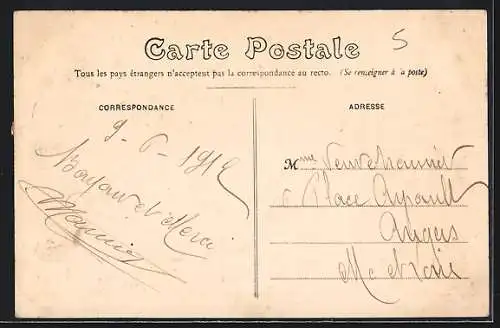 Carte Postale
5
Tous les pays étrangers n'acceptent pas la correspondance au recto. (Se renseigner à la poste)
CORRESPONDANCE
9-6-1912
et Merci
ADRESSE
Mme
Place Ayrault
Angers
M et Loire